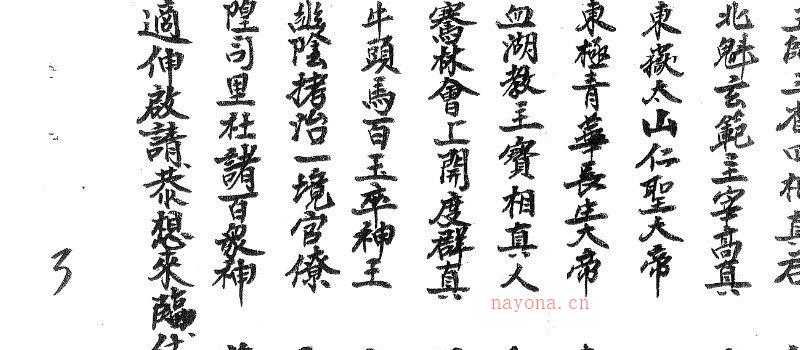 三元三官四相真君
北魁玄範主宰高真
東嶽太山仁聖大帝
東極青華長生大帝
血湖教主寶相真人
騫林會上開度群真
牛頭馬百玉卒神王
幽陰拷治一境官僚
隍司里社諸百眾神
適伸啟請恭想來臨
nayona.cn